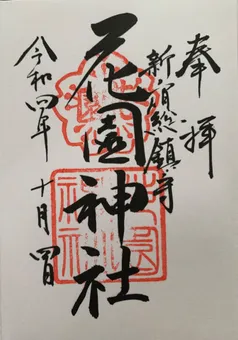 奉拝
新宿総鎮守
花園神社
令和四年十月四日